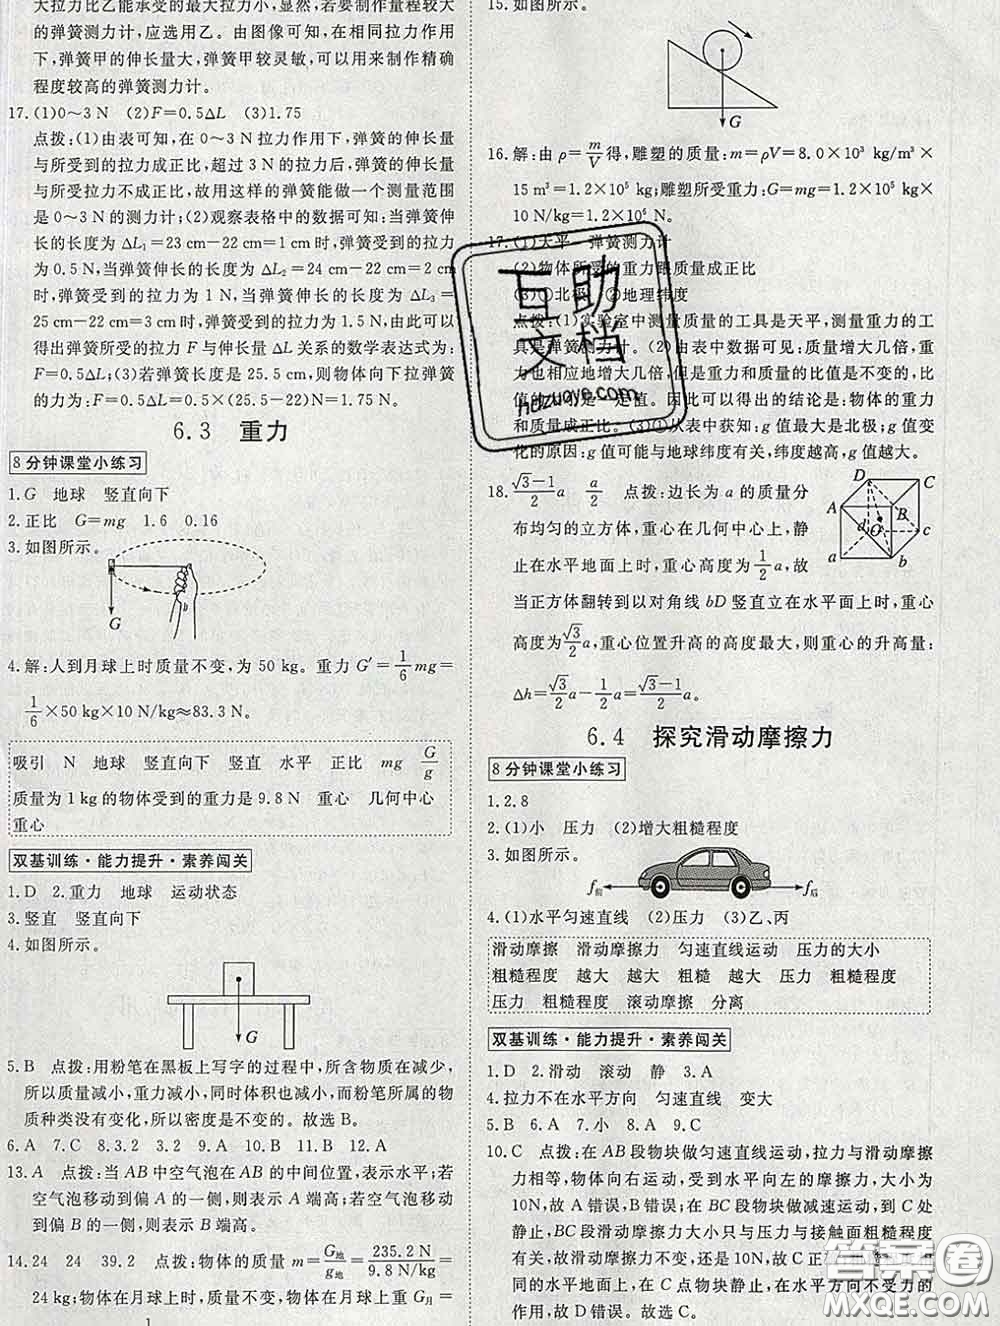 大拉力比乙能承受的最大拉力小，显然，若要制作量程较大
的弹簧测力计，应选用乙。由图像可知，在相同拉力作用
下，弹簧甲的伸长量大，弹簧甲较灵敏，可以用来制作精确
程度较高的弹簧测力计。
17.(1)0～3 N　(2)F=0.5ΔL　(3)1.75
点拨：(1)由表可知，在0～3 N拉力作用下，弹簧的伸长量
与所受到的拉力成正比，超过3 N的拉力后，弹簧的伸长量
与所受拉力不成正比，故用这样的弹簧能做一个测量范围
是0～3 N的测力计；(2)观察表格中的数据可知：当弹簧伸
长的长度为ΔL₁=23 cm-22 cm=1 cm时，弹簧受到的拉力
为0.5 N，当弹簧伸长的长度为ΔL₂=24 cm-22 cm=2 cm
时，弹簧受到的拉力为1 N，当弹簧伸长的长度为ΔL₃=
25 cm-22 cm=3 cm时，弹簧受到的拉力为1.5 N，由此可以
得出弹簧所受的拉力F与伸长量ΔL关系的数学表达式为：
F=0.5ΔL；(3)若弹簧长度是25.5 cm，则物体向下拉弹簧
的力为：F=0.5ΔL=0.5×(25.5-22)N=1.75 N。
6.3　重力
8分钟课堂小练习
1.G　地球　竖直向下
2.正比　G=mg　1.6　0.16
3.如图所示。
G
4.解：人到月球上时质量不变，为50 kg。重力G′=1/6mg=
1/6×50 kg×10 N/kg≈83.3 N。
吸引　N　地球　竖直向下　竖直　水平　正比　mg　G/g
质量为1 kg的物体受到的重力是9.8 N　重心　几何中心
重心
双基训练·能力提升·素养闯关
1.D　2.重力　地球　运动状态
3.竖直　竖直向下
4.如图所示。
G
5.B　点拨：用粉笔在黑板上写字的过程中，所含物质在减少，
所以质量减小，重力减小，同时体积也在减小，而粉笔所属的
物质种类没有变化，所以密度是不变的。故选B。
6.A　7.C　8.3.2　3.2　9.C　10.B　11.B　12.A
13.A　点拨：当AB中空气泡在AB的中间位置，表示水平；若
空气泡移动到偏A的一侧，则表示A端高；若空气泡移动
到偏B的一侧，则表示B端高。
14.24　24　39.2　点拨：物体的质量m=G地/g地=235.2 N/9.8 N/kg=
24 kg；物体在月球上时，质量不变，物体在月球上重G月=
1
15.如图所示。
G
16.解：由ρ=m/V得，雕塑的质量：m=ρV=8.0×10³ kg/m³×
15 m³=1.2×10⁵ kg；雕塑所受重力：G=mg=1.2×10⁵ kg×
10 N/kg=1.2×10⁶ N。
17.(1)天平　弹簧测力计
(2)物体所受的重力跟质量成正比
(3)①北极　②地理纬度
点拨：(1)实验室中测量质量的工具是天平，测量重力的工
具是弹簧测力计。(2)由表中数据可见：质量增大几倍，
重力也相应地增大几倍，但是重力和质量的比值是不变的，
即重力与质量的比值是一定值。因此可以得出的结论是：物体的重力
和质量成正比。(3)①从表中获知：g值最大的是北极；g值变
化的原因：g值可能与地球纬度有关，纬度越高，g值越大。
18.(√3-1)/2 a　a/2　点拨：边长为a的质量分
布均匀的立方体，重心在几何中心上，静
止在水平地面上时，重心高度为1/2a，故
当正方体翻转到以对角线bD竖直立在水平面上时，重心
高度为√3/2a，重心位置升高的高度最大，则重心的升高量：
Δh=√3/2a-1/2a=(√3-1)/2 a。
D
C
A
B
d
O
c
a
b
6.4　探究滑动摩擦力
8分钟课堂小练习
1.2.8
2.(1)小　压力　(2)增大粗糙程度
3.如图所示。
f前
f后
4.(1)水平匀速直线　(2)压力　(3)乙、丙
滑动摩擦　滑动摩擦力　匀速直线运动　压力的大小
粗糙程度　越大　越大　粗糙　越大　压力　粗糙程度
压力　粗糙程度　滚动摩擦　分离
双基训练·能力提升·素养闯关
1.D　2.滑动　滚动　静　3.A
4.拉力不在水平方向　匀速直线　变大
5.B　6.A　7.小　8.A　9.C
10.C　点拨：在AB段物块做匀速直线运动，拉力与滑动摩擦
力相等，物体向右运动，受到水平向左的摩擦力，大小为
10N，故A错误，B错误；在BC段物块做减速运动，到C处
静止，BC段滑动摩擦力大小只与压力与接触面粗糙程度
有关，故滑动摩擦力不变，还是10N，故C正确；
同的水平地面上，在C点物块静止，在水平方向不受力的
作用，故D错误。故选C。
互助文档
hdzuoye.com
答案圈
MXQE.COM